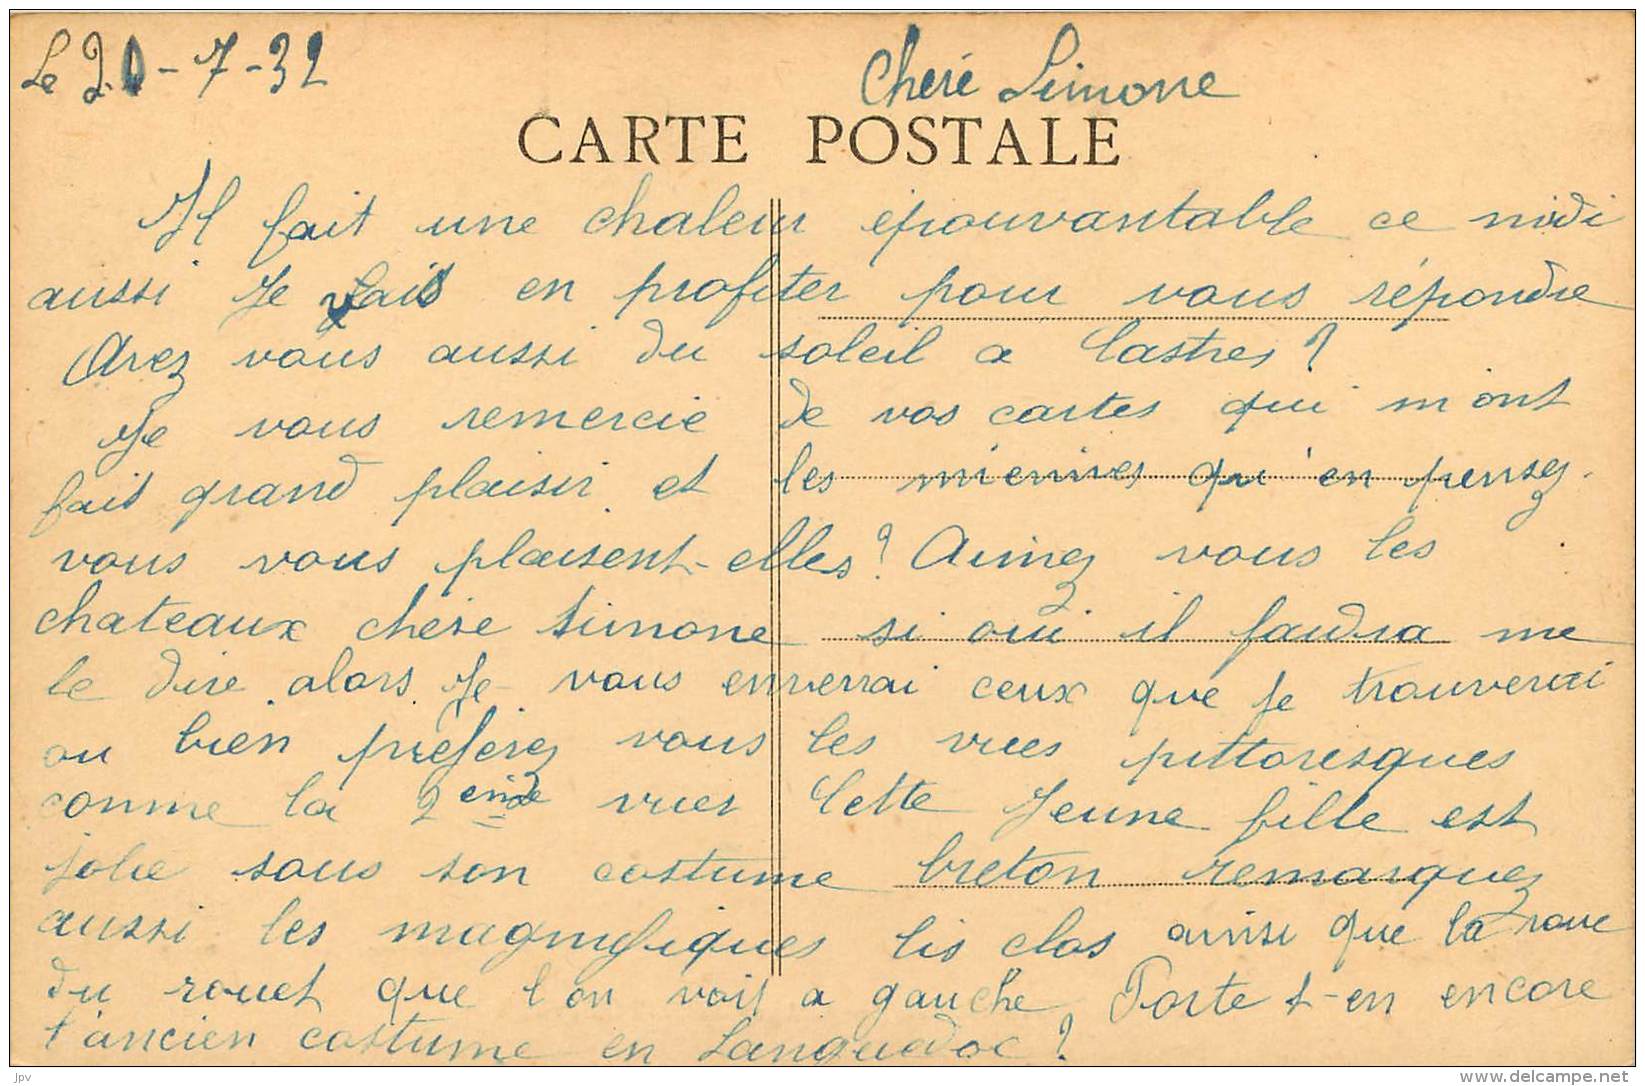 Le 20-7-32
Cheré Simone
CARTE POSTALE
Il fait une chaleur épouvantable ce midi
aussi Je fais en profiter pour vous répondre
Avez vous aussi du soleil a Castres ?
Je vous remercie de vos cartes qui m'ont
fait grand plaisir et les miennes qu'en pensez-
vous vous plaisent-elles ? Aimez vous les
chateaux chère Simone si oui il faudra me
le dire alors Je vous enverrai ceux que je trouverai
ou bien préférez vous les vues pittoresques
comme la 2ème vues Cette Jeune fille est
jolie sous son costume breton remarquez
aussi les magnifiques lis clos ainsi que la roue
du rouet que l'on voit a gauche Porte t-en encore
l'ancien costume en Languedoc ?
jpv
www.delcampe.net